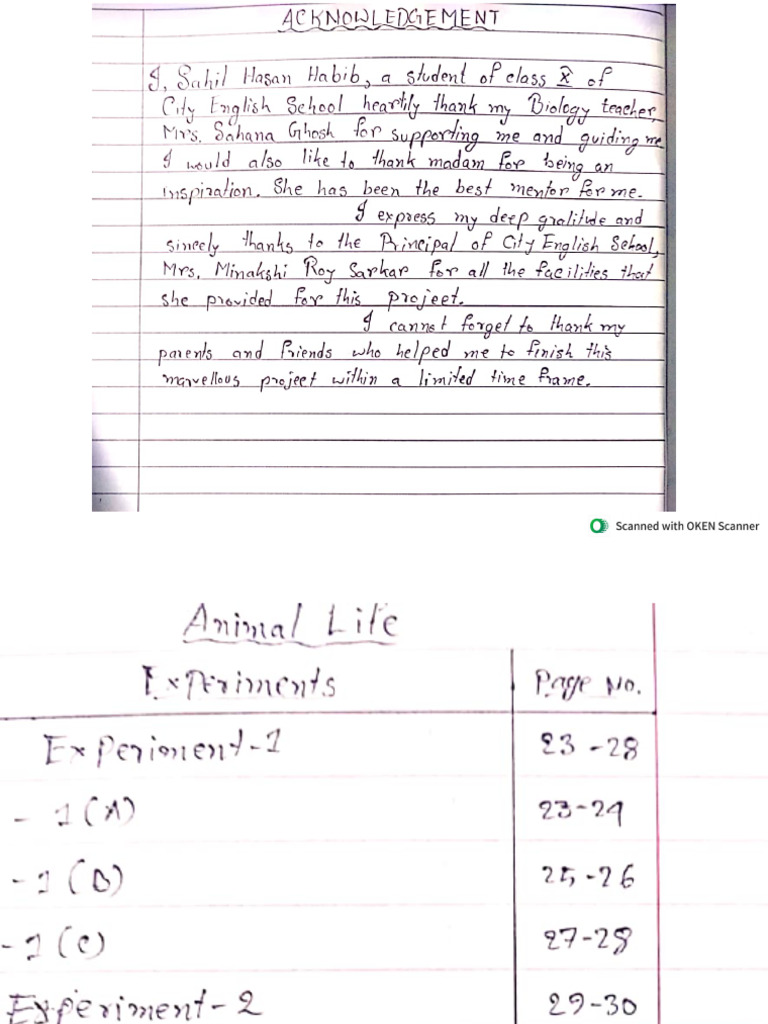 ACKNOWLEDGEMENT
I, Sahil Hasan Habib, a student of class X of
City English School heartily thank my Biology teacher,
Mrs. Sahana Ghosh for supporting me and guiding me
I would also like to thank madam for being an
inspiration. She has been the best mentor for me.
I express my deep gratitude and
sincely thanks to the Principal of City English School,
Mrs. Minakshi Roy Sarkar for all the facilities that
she provided for this project.
I cannot forget to thank my
parents and friends who helped me to finish this
marvellous project within a limited time frame.
Scanned with OKEN Scanner
Animal Life
Experiments Page No.
Experiment-1 23-28
- 1(A) 23-24
- 1(B) 25-26
- 1(C) 27-28
Experiment-2 29-30